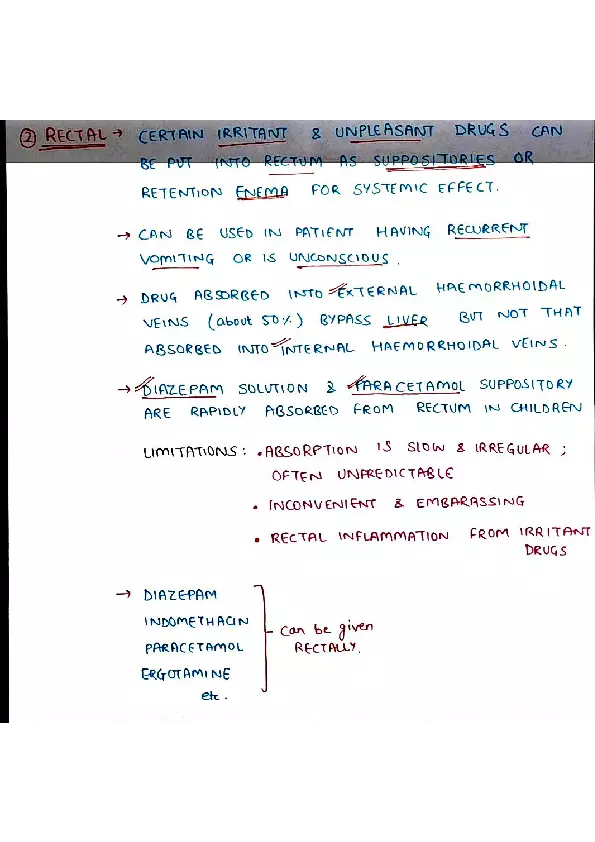 ② RECTAL → CERTAIN IRRITANT & UNPLEASANT DRUGS CAN
BE PUT INTO RECTUM AS SUPPOSITORIES OR
RETENTION ENEMA FOR SYSTEMIC EFFECT.
→ CAN BE USED IN PATIENT HAVING RECURRENT
VOMITING OR IS UNCONSCIOUS.
→ DRUG ABSORBED INTO EXTERNAL HAEMORRHOIDAL
VEINS (about 50%) BYPASS LIVER BUT NOT THAT
ABSORBED INTO INTERNAL HAEMORRHOIDAL VEINS.
→ DIAZEPAM SOLUTION & PARACETAMOL SUPPOSITORY
ARE RAPIDLY ABSORBED FROM RECTUM IN CHILDREN
LIMITATIONS: • ABSORPTION IS SLOW & IRREGULAR ;
OFTEN UNPREDICTABLE
• INCONVENIENT & EMBARASSING
• RECTAL INFLAMMATION FROM IRRITANT
DRUGS
→ DIAZEPAM
INDOMETHACIN
PARACETAMOL
ERGOTAMINE
etc.
Can be given
RECTALLY.